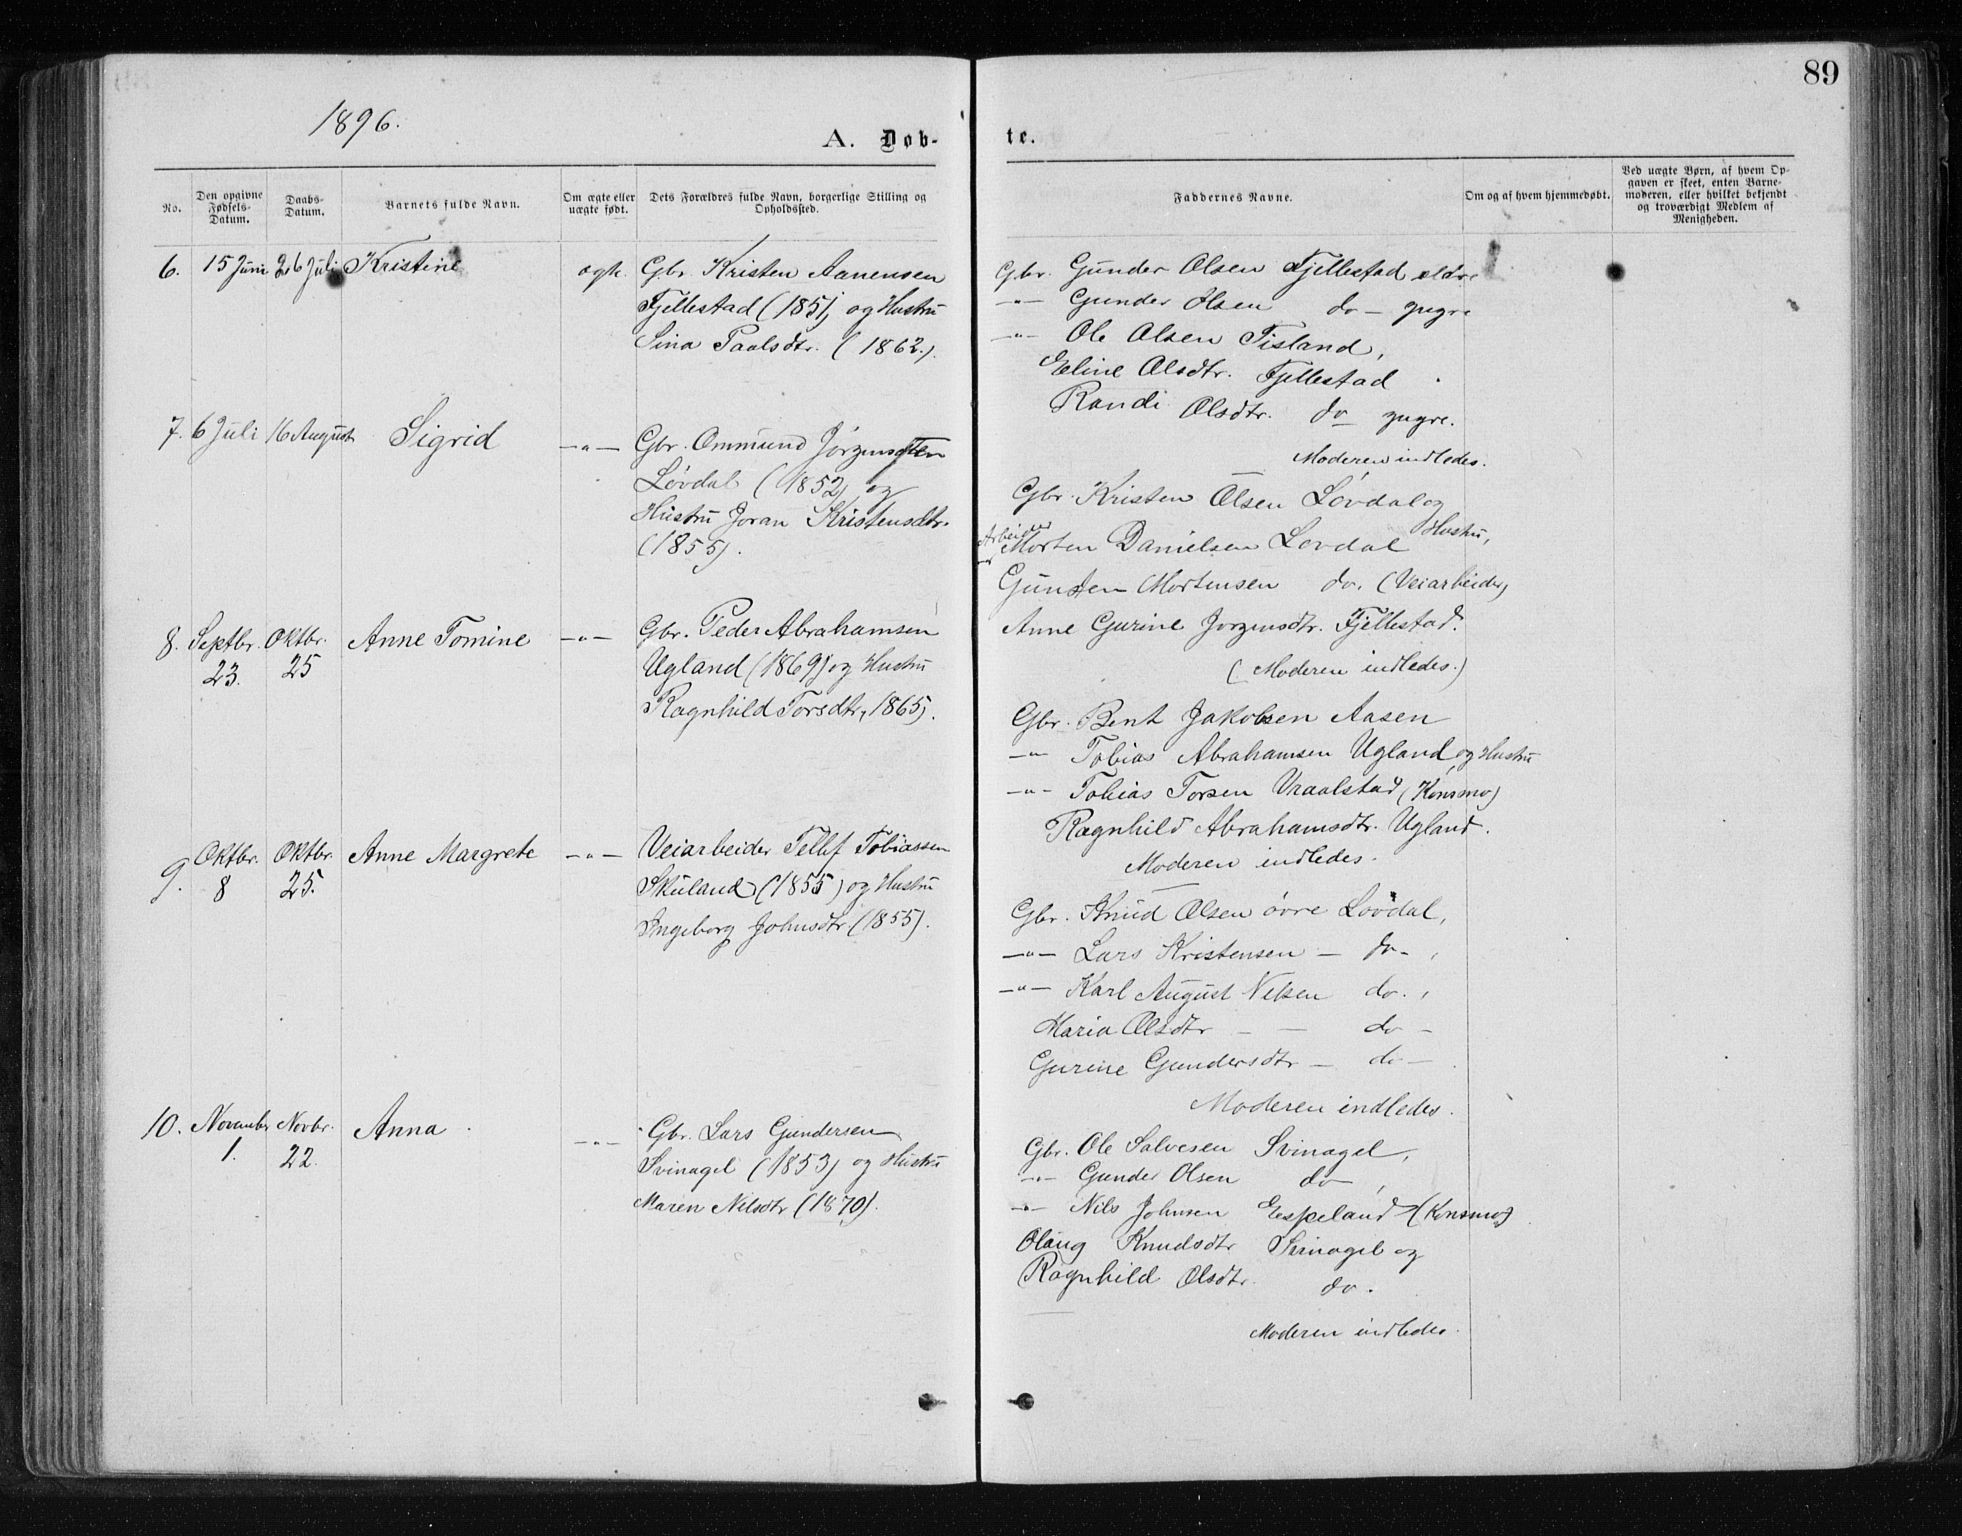 89
1896.
A. Døb-
te.
No.
Den opgivne Fødsels-Datum.
Daabs-Datum.
Barnets fulde Navn.
Om ægte eller uægte født.
Dets Forældres fulde Navn, borgerlige Stilling og Opholdssted.
Faddernes Navne.
Om og af hvem hjemmedøbt.
Ved uægte Børn, af hvem Opgaven er skeet, enten Barnemoderen, eller hvilket bekjendt og troværdigt Medlem af Menigheden.
6. 15 Juni 26 Juli Kristine ægte. Gbr. Kristen Aanensen
Fjellestad (1851) og Hustru
Sina Paalsdtr. (1862.)
Gbr. Gunder Olsen Fjellestad eldre
—"— Gunder Olsen do — yngre
—"— Ole Olsen Tisland,
Eline Olsdtr. Fjellestad
Randi Olsdtr. do yngre.
Moderen indledes.
7. 6 Juli 16 August Sigrid —"— Gbr. Ommund Jørgensen
Løvdal (1852) og
Hustru Joran Kristensdtr.
(1855).
Gbr. Kristen Olsen Løvdal og
Hustru,
Arbeider Morten Danielsen Lovdal
Gunder Mortensen do. (Veiarbeider)
Anne Gurine Jorgensdtr. Fjellestad.
(Moderen indledes.)
8. Septbr. 23. Oktbr. 25 Anne Tomine —"— Gbr. Peder Abrahamsen
Ugland (1869) og Hustru
Ragnhild Torsdtr, 1865).
Gbr. Bent Jakobsen Aasen
—"— Tobias Abrahamsen Ugland og Hustru
—"— Tobias Torsen Vraalstad (Konsmo)
Ragnhild Abrahamsdtr. Ugland.
Moderen indledes.
9. Oktbr. 8 Oktbr. 25. Anne Margrete —"— Veiarbeider Tellef Tobiassen
Skuland (1855) og Hustru
Ingeborg Johnsdtr (1855).
Gbr. Knud Olsen øvre Lovdal,
—"— Lars Kristensen — do — ,
—"— Karl August Nelsen do. ,
Maria Olsdtr — — do —
Gurine Gundersdtr — do —
Moderen indledes.
10. November 1. Novbr. 22. Anna —"— Gbr. Lars Gundersen
Svinagel (1853) og Hustru
Maren Nilsdtr (1870).
Gbr. Ole Salvesen Svinagel,
—"— Gunder Olsen do ,
—"— Nils Johnsen Eespeland (Konsmo)
Olaug Knudsdtr Svinagel og
Ragnhild Olsdtr. do.
Moderen indledes.